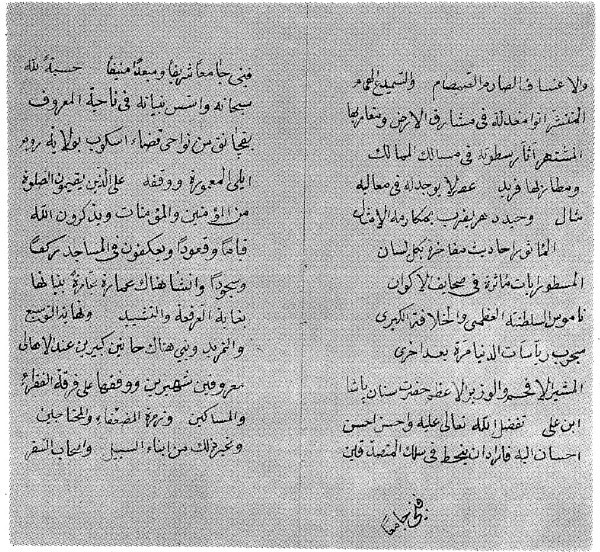 والاعتساف الصارم الصمصام والسميدع الهمام
المنتشر انوار معدلته في مشارق الارض ومغاربها
المشتهر آثار سطوته في مسالك الممالك
ومطارزلها فريد عصر لا يوجد له في معاليه
مثال وحيد دهر يضرب بمكارمه الامثال
المأثور احاديث مفاخره بكل لسان
المسطور ايات مآثره في صحايف الاكوان
ناموس السلطنة العظمى والخلافة الكبرى
سحوب رياسات الدنيا مرة بعد اخرى
المشير الافخم والوزير الاعظم حضرت سنان پاشا
ابن على تفضل الله تعالى عليه واحسن احسن
احسان اليه فاراد ان ينخرط في سلك المتصدقين
فبنى جامعا
فبنى جامعا شريفا ومعبدا منيفا حسبة لله
سبحانه واسس بنيانه في ناحية المعروف
بقچانق من نواحى قضاء اسكوب بولاية روم
ايلى المعمورة ووقفه على الذين يقيمون الصلوة
من المؤمنين والمؤمنات ويذكرون الله
قياما وقعودا ويعكفون في المساجد ركعا
وسجودا وانشأ هناك عمارة عامرة بنيانها
بغاية الرفعة والتشييد ونهاية التوسيع
والتمريد وبنى هناك خانين كبيرين عند الاهالى
معروفين شهيرين ووقفها على فرقة الفقراء
والمساكين وزمرة الضعفاء والمحتاجين
وغير ذلك من ابناء السبيل واصحاب السفر